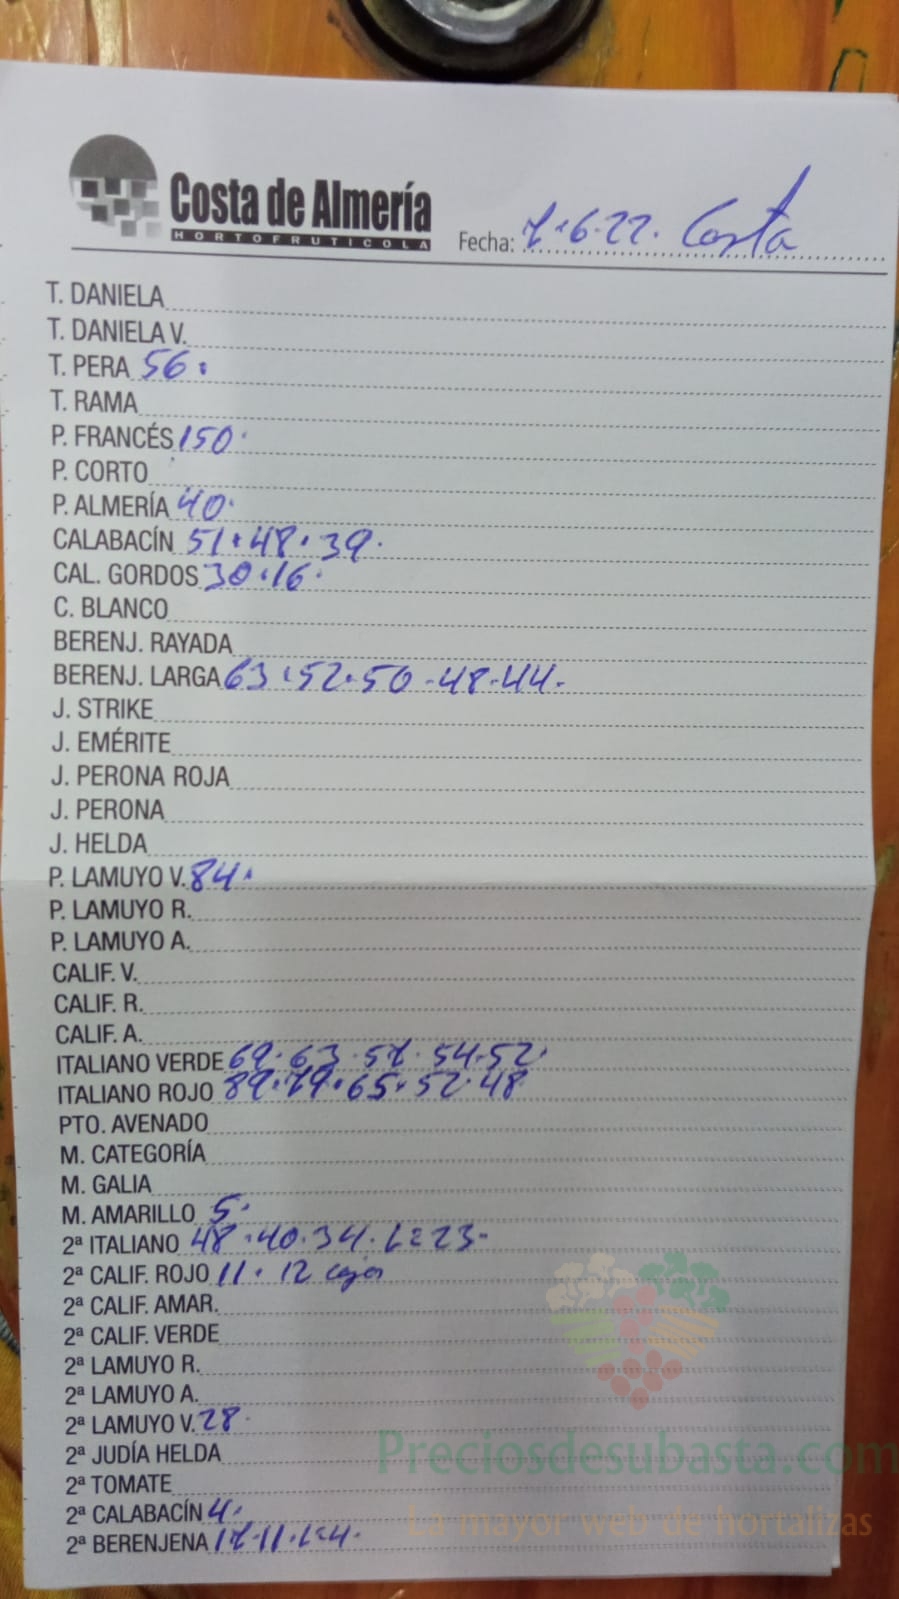 Costa de Almería
HORTOFRUTICOLA
Fecha: 7-6-22. Costa
T. DANIELA
T. DANIELA V.
T. PERA 56.
T. RAMA
P. FRANCÉS 150.
P. CORTO
P. ALMERÍA 40.
CALABACÍN 51.48.39.
CAL. GORDOS 30.16.
C. BLANCO
BERENJ. RAYADA
BERENJ. LARGA 63.52.50-48-44-
J. STRIKE
J. EMÉRITE
J. PERONA ROJA
J. PERONA
J. HELDA
P. LAMUYO V. 84.
P. LAMUYO R.
P. LAMUYO A.
CALIF. V.
CALIF. R.
CALIF. A.
ITALIANO VERDE 69.63.57.54.52.
ITALIANO ROJO 89.79.65.52.48
PTO. AVENADO
M. CATEGORÍA
M. GALIA
M. AMARILLO 5.
2ª ITALIANO 48.40.34. 23-
2ª CALIF. ROJO 11. 12 cajas
2ª CALIF. AMAR.
2ª CALIF. VERDE
2ª LAMUYO R.
2ª LAMUYO A.
2ª LAMUYO V. 28.
2ª JUDÍA HELDA
Preciosdesubasta.com
2ª TOMATE
2ª CALABACÍN 4.
La mayor web de hortalizas
2ª BERENJENA 17.11.